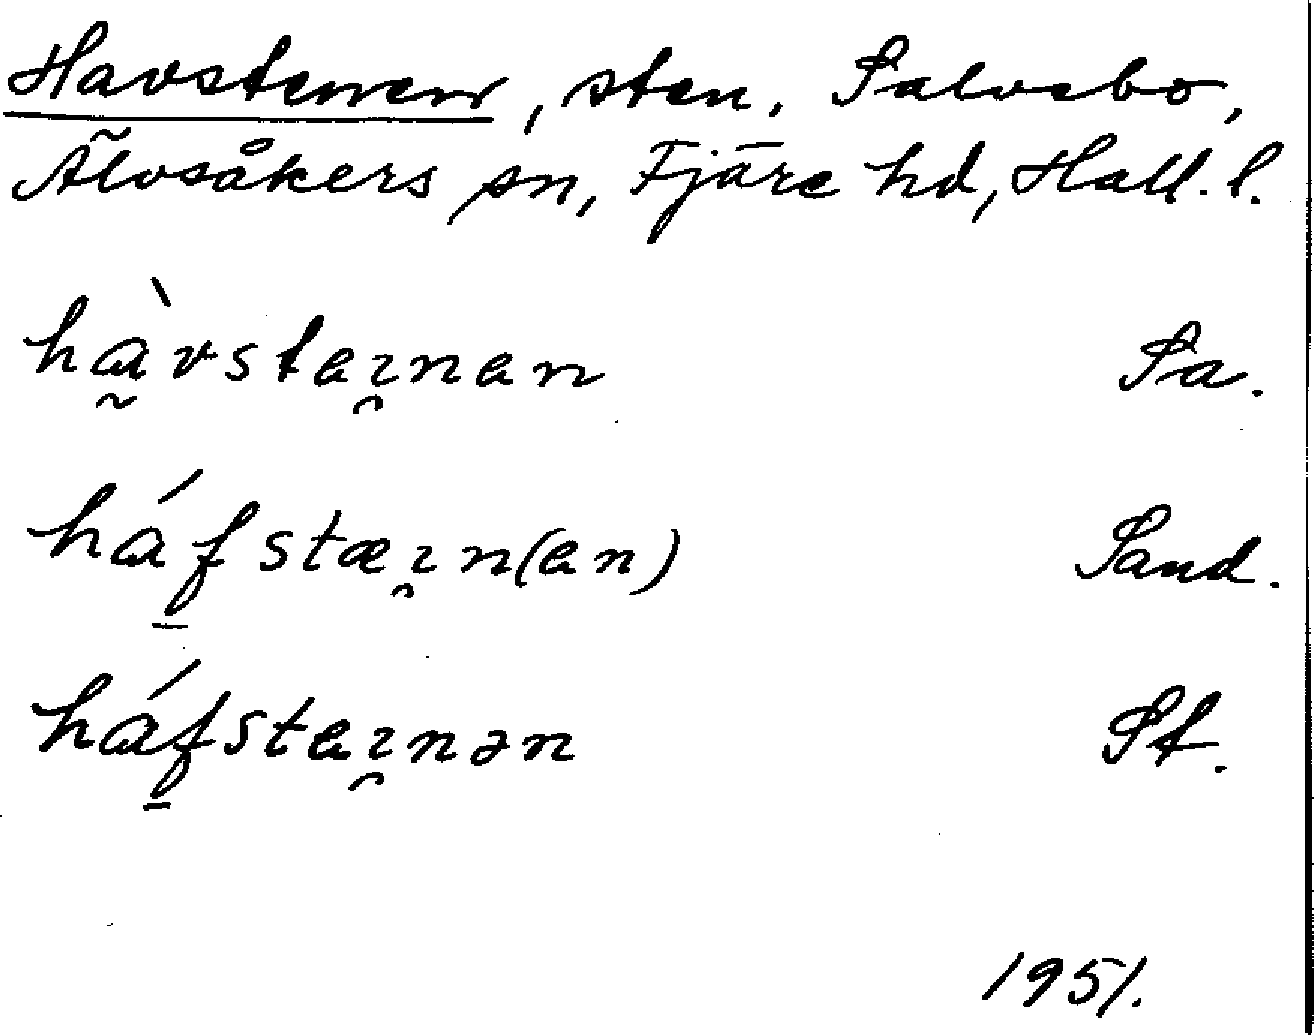 Havstenen, sten. Salvebo,
Älvsåkers sn, Fjäre hd, Hall. l.
hàvsteı̯nen Sa.
háf̱stæı̯n(en) Sand.
háf̱steı̯nən St.
1951.